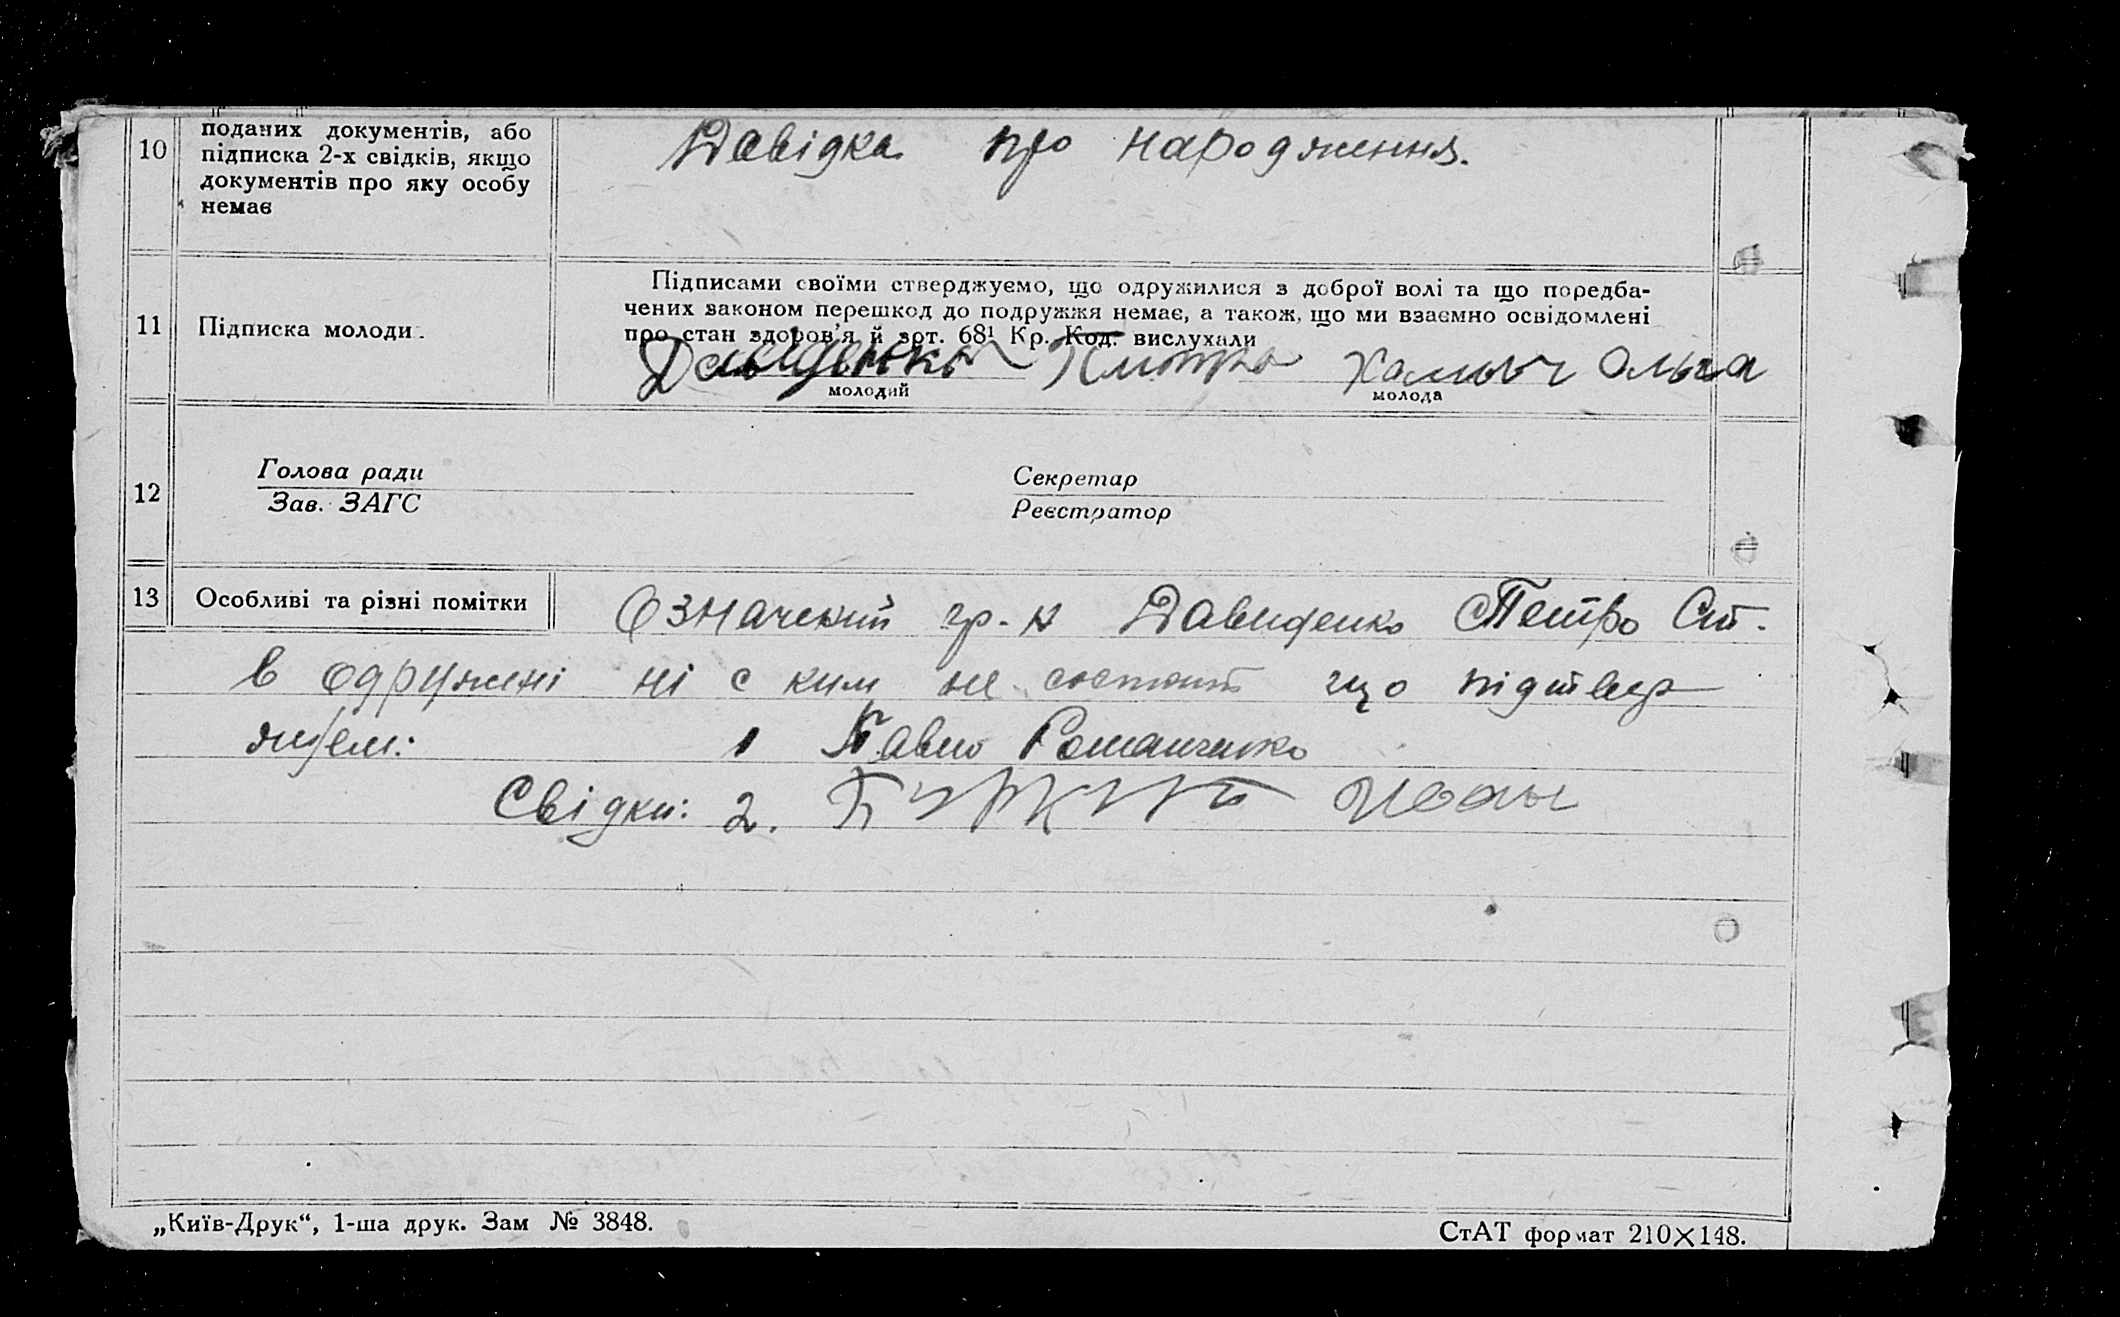 10
поданих документів, або
підписка 2-х свідків, якщо
документів про яку особу
немає
Давідка про народження.
11
Підписка молоди
Підписами своїми стверджуємо, що одружилися з доброї волі та що поредба-
чених законом перешкод до подружжя немає, а також, що ми взаємно освідомлені
про стан здоров'я й арт. 68¹ Кр. Код. вислухали
Давиденко Ольга
молодий молода
12
Голова ради
Зав. ЗАГС
Секретар
Реєстратор
13
Особливі та різні помітки
Означений гр.-н Давиденко Петро Ст.
в одружені ні с ким не состоит що підтвер
жуем:
1 Павло Романченко
Свідки: 2.
„Київ-Друк“, 1-ша друк. Зам № 3848.
СтАТ формат 210×148.